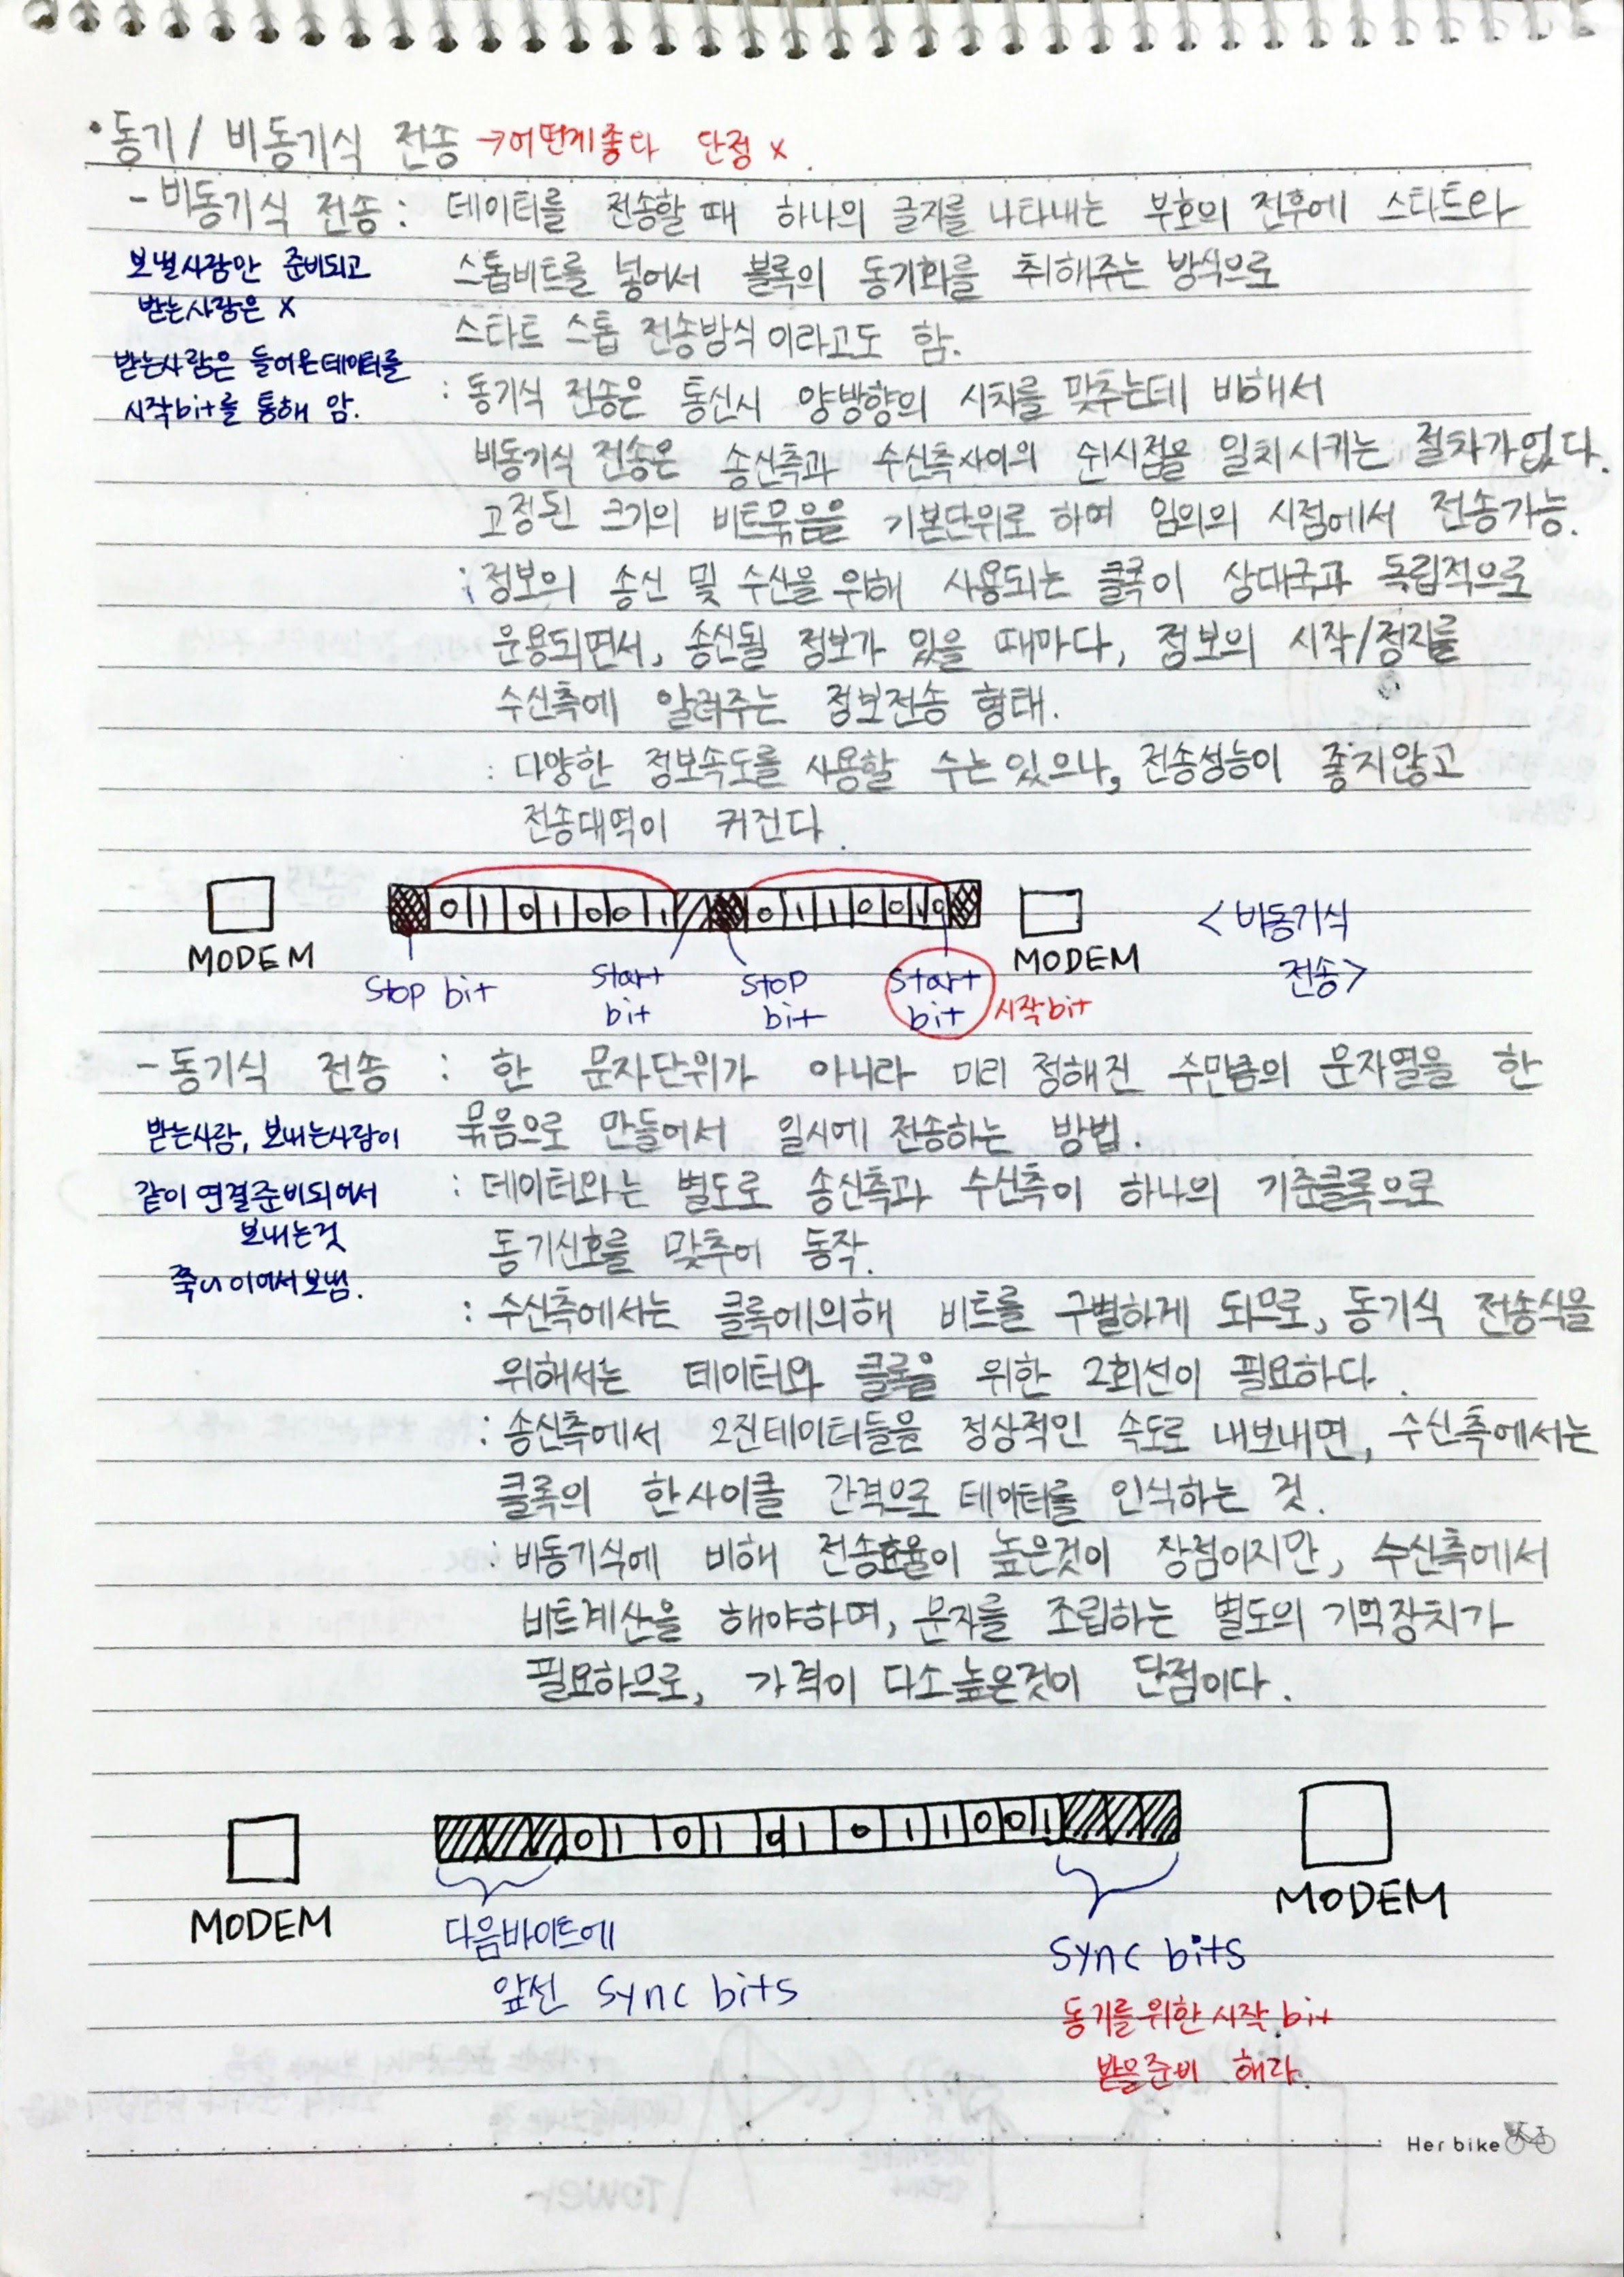 • 동기/ 비동기식 전송 → 어떤게 좋다 단정 x.
- 비동기식 전송 : 데이터를 전송할 때 하나의 글자를 나타내는 부호의 전후에 스타트와
스톱비트를 넣어서 블록의 동기화를 취해주는 방식으로
스타트 스톱 전송방식이라고도 함.
보낼사람만 준비되고
받는사람은 x
받는사람은 들어온데이터를
시작bit를 통해 암.
: 동기식 전송은 통신시 양방향의 시차를 맞추는데 비해서
비동기식 전송은 송신측과 수신측사이의 쉰시점을 일치시키는 절차가없다.
고정된 크기의 비트묶음을 기본단위로 하여 임의의 시점에서 전송가능.
: 정보의 송신 및 수신을 위해 사용되는 클록이 상대국과 독립적으로
운용되면서, 송신될 정보가 있을 때마다, 정보의 시작/정지를
수신측에 알려주는 정보전송 형태.
: 다양한 정보속도를 사용할 수는 있으나, 전송성능이 좋지않고
전송대역이 커진다.
MODEM
0 1 0 1 0 0 1
0 1 1 0 0 1 0
MODEM
<비동기식
전송>
Stop bit
Start
bit
Stop
bit
Start
bit
시작bit
- 동기식 전송 : 한 문자단위가 아니라 미리 정해진 수만큼의 문자열을 한
묶음으로 만들어서 일시에 전송하는 방법.
받는사람, 보내는사람이
같이 연결준비되어서
보내는것
죽 이어서보냄.
: 데이터와는 별도로 송신측과 수신측이 하나의 기준클록으로
동기신호를 맞추어 동작.
: 수신측에서는 클록에의해 비트를 구별하게 되므로, 동기식 전송식을
위해서는 데이터와 클록을 위한 2회선이 필요하다.
: 송신측에서 2진데이터들을 정상적인 속도로 내보내면, 수신측에서는
클록의 한사이클 간격으로 데이터를 인식하는 것.
: 비동기식에 비해 전송효율이 높은것이 장점이지만, 수신측에서
비트계산을 해야하며, 문자를 조립하는 별도의 기억장치가
필요하므로, 가격이 다소높은것이 단점이다.
MODEM
0 1 0 1 0 1 0 1 1 0 0 1
MODEM
다음바이트에
앞선 sync bits
Sync bits
동기를위한 시작 bit
받을준비 해라.
Her bike